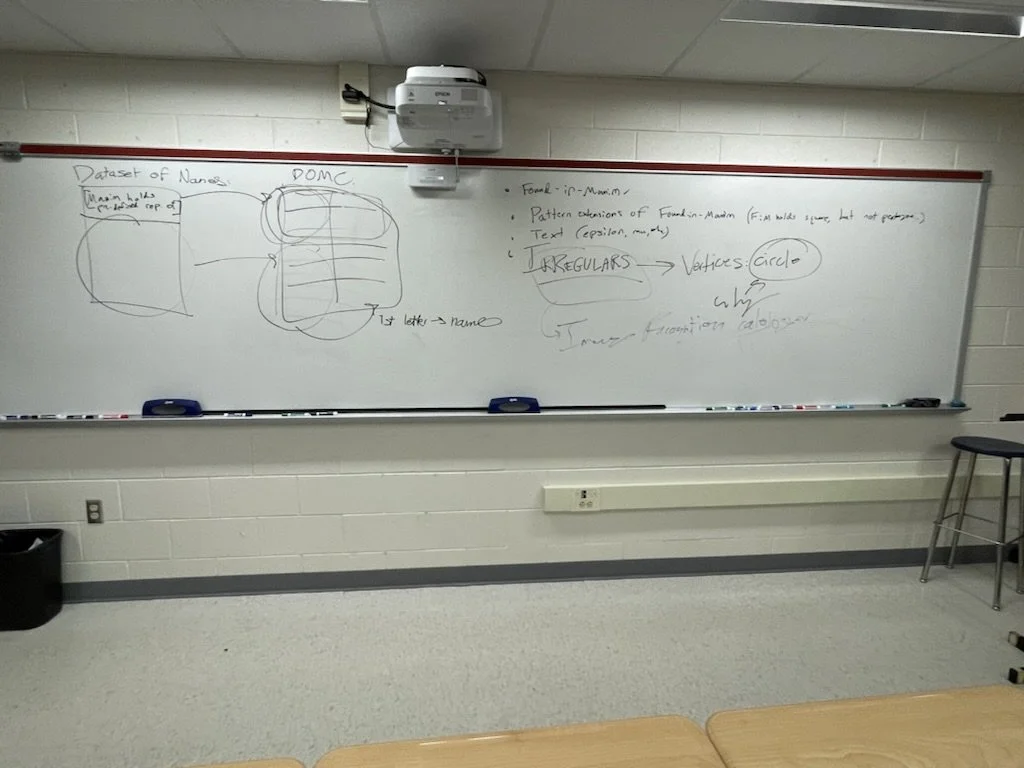 Dataset of Names:
[Maxim holds
pre-defined rep of]
DOMC
1st letter → name
EPSON
• Found-in-Maxim
• Pattern extensions of Found-in-Maxim (FiM holds square, but not pentagon.)
• Text (epsilon, mu, etc)
IRREGULARS → Vertices: circle
why
Image Recognition